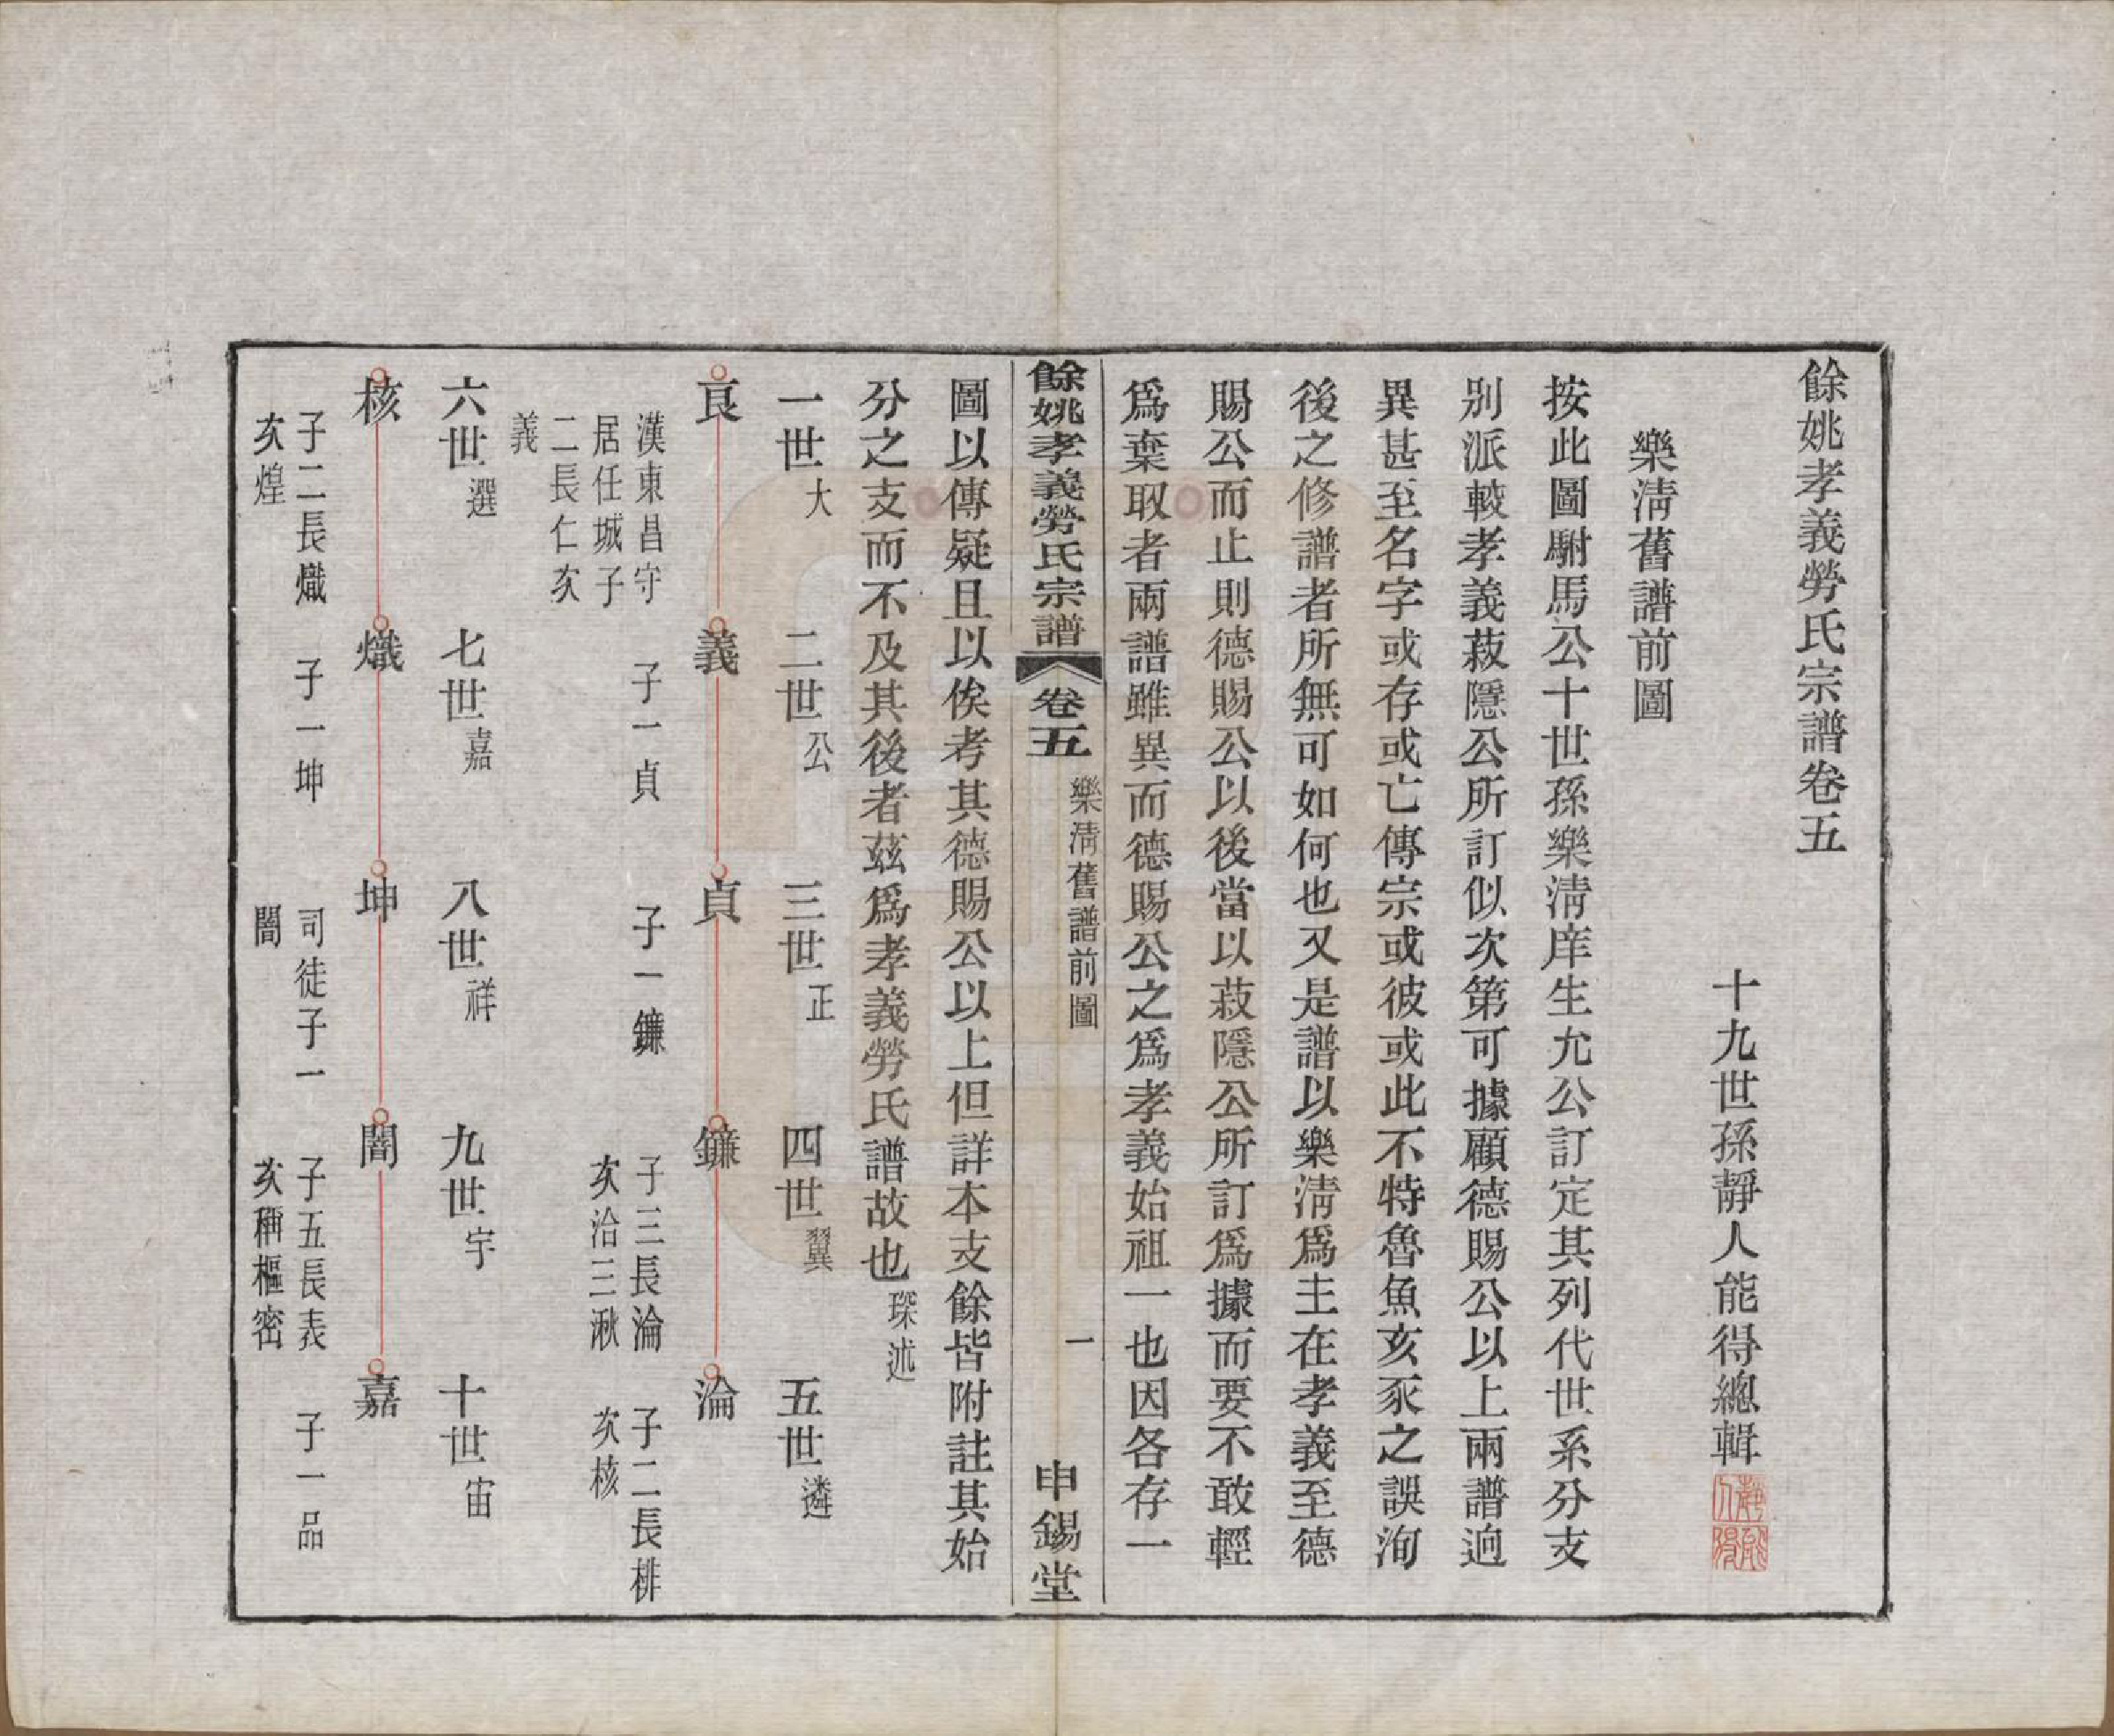 餘姚孝義勞氏宗譜卷五
十九世孫靜人能得總輯
樂淸舊譜前圖
按此圖駙馬公十世孫樂淸庠生允公訂定其列代世系分支
別派較孝義菽隱公所訂似次第可據顧德賜公以上兩譜迥
異甚至名字或存或亡傳宗或彼或此不特魯魚亥豕之誤洵
後之修譜者所無可如何也又是譜以樂淸爲主在孝義至德
賜公而止則德賜公以後當以菽隱公所訂爲據而要不敢輕
爲棄取者兩譜雖異而德賜公之爲孝義始祖一也因各存一
餘姚孝義勞氏宗譜 卷五 樂淸舊譜前圖 一 申錫堂
圖以傳疑且以俟考其德賜公以上但詳本支餘皆附註其始
分之支而不及其後者茲爲孝義勞氏譜故也 琛述
一世 大 二世 公 三世 正 四世 翼 五世 遴
㫐 義 貞 鐮 淪
漢東昌守
居任城子
二長仁次
義
子一貞
子一鐮
子三長淪
次洽三湫
子二長棑
次核
六世 選 七世 嘉 八世 祥 九世 宇 十世 宙
核 熾 坤 闇 嘉
子二長熾
次煌
子一坤
司徒子一
闇
子五長表
次稱樞密
子一品